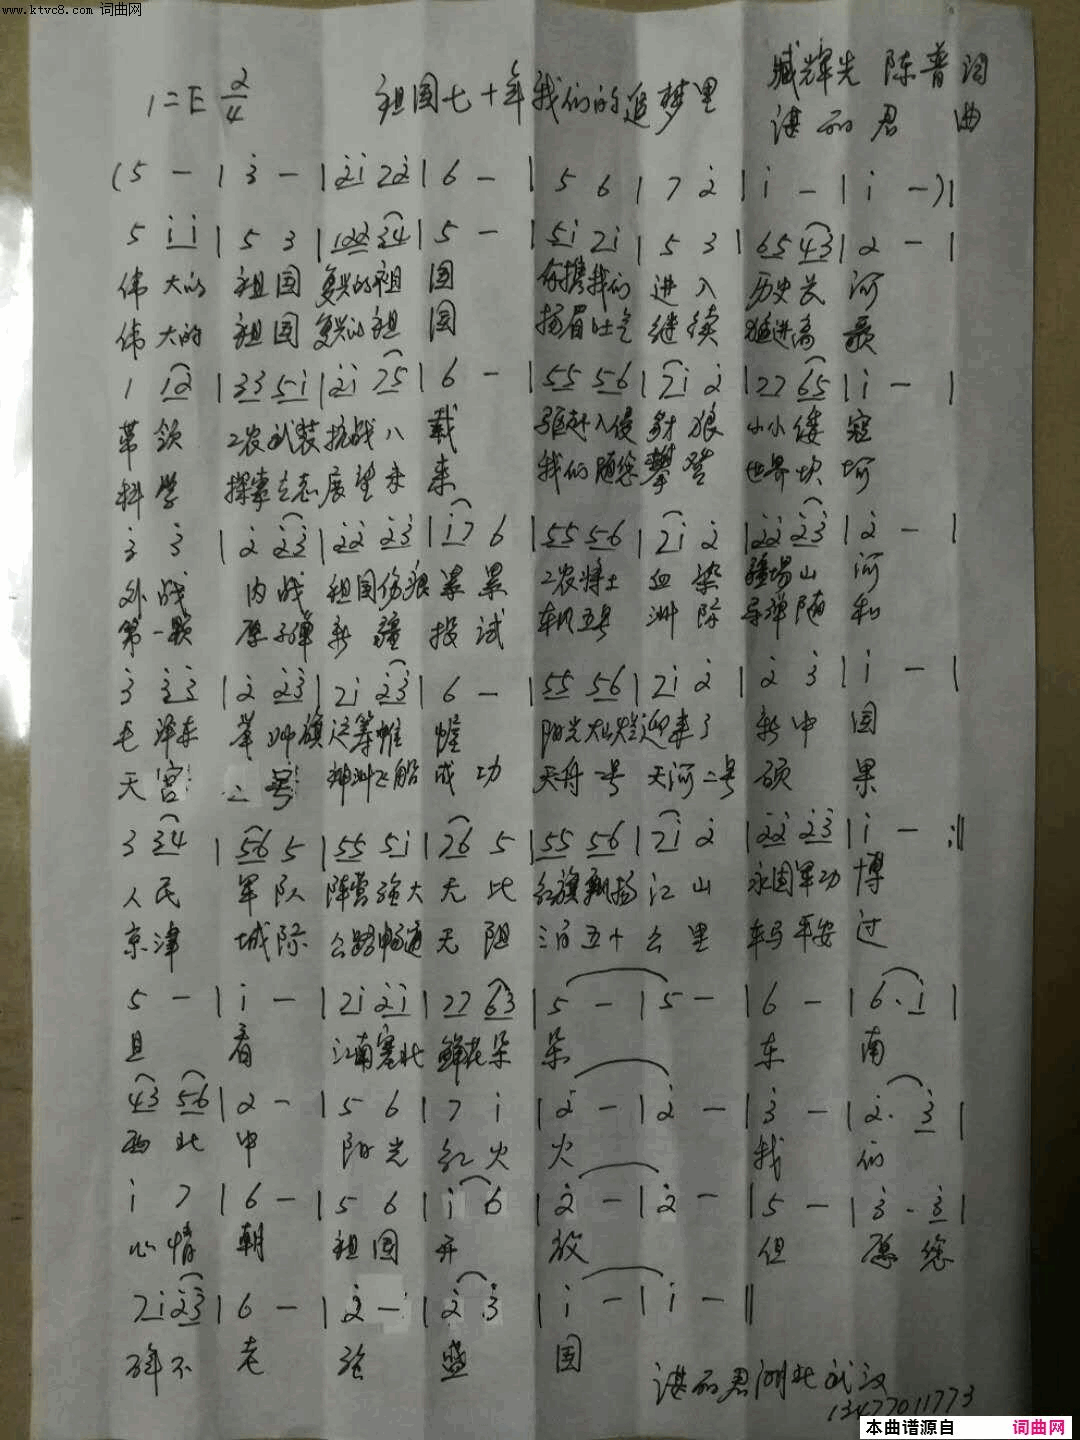 www.ktvc8.com 词曲网
1=E 2/4 祖国七十年我们的追梦里 臧辉先 陈普词
谌丽君 曲
(5 - | 3̇ - | 2̇1̇ 72̇ | 6 - | 5 6 | 7 2̇ | 1̇ - | 1̇ -) |
5 1̇1̇ | 5 3 | 122 34 | 5 - | 51̇ 21̇ | 5 3 | 65 43 | 2 - |
伟大的 祖国 复兴的祖 国 你携我们 进入 历史长 河
伟大的 祖国 复兴的祖 国 扬眉吐气 继续 进高 歌
1 12 | 33 51̇ | 2̇1̇ 75 | 6 - | 55 56 | 71̇ 2̇ | 77 65 | 1̇ - |
带领 工农武装抗战八 载 驱赶入侵豺狼 小小倭 寇
科学 探索立志展望未 来 我们随您攀登 世界坎 坷
3̇ 3̇ | 2̇ 2̇3̇ | 2̇2̇ 2̇3̇ | 1̇7 6 | 55 56 | 71̇ 2̇ | 2̇2̇ 2̇3̇ | 2̇ - |
外战 内战 祖国伤痕累累 工农将士 血染 疆场山 河
第一颗 原子弹 新疆 投试 东风五号 洲际 导弹随 和
3̇ 3̇3̇ | 2̇ 2̇3̇ | 71̇ 2̇3̇ | 6 - | 55 56 | 71̇ 2̇ | 2̇ 3̇ | 1̇ - |
毛泽东 举帅旗运筹帷 幄 阳光灿烂迎来了 新中 国
天宫 二号 神州飞船成功 天舟一号 天河二号 硕 果
3 34 | 56 5 | 55 51̇ | 76 5 | 55 56 | 71̇ 2̇ | 2̇2̇ 2̇3̇ | 1̇ - :‖
人民 军队 阵营强大无比 红旗飘扬江山 永固军功 博
京津 城际 公路畅通无阻 三百五十公里 车马平安 过
5 - | 1̇ - | 71̇ 2̇1̇ | 77 63 | 5 - | 5 - | 6 - | 6 · 1̇ |
且 看 江南塞北 鲜花朵 朵 东 南
43 56 | 2 - | 5 6 | 7 1̇ | 2̇ - | 2̇ - | 3̇ - | 2̇ · 3̇ |
西北 中 阳光 红火 火 我 们
1̇ 7 | 6 - | 5 6 | 1̇ 6 | 2̇ - | 2̇ - | 5 - | 3̇ · 3̇ |
心情 朝 祖国 开 放 但 愿您
71̇ 2̇3̇ | 6 - | 2̇ - | 2̇ 3̇ | 1̇ - | 1̇ - ‖
年不 老 强 盛 国
谌丽君湖北武汉
13477011773
本曲谱源自 词曲网